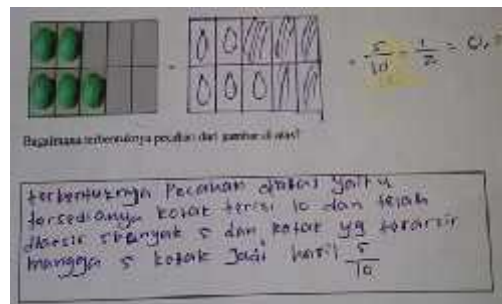 = = 5/10 = 1/2 = 0,
Bagaimana terbentuknya pecahan dari gambar di atas?
terbentuknya Pecahan diatas yaitu
tersedianya kotak terisi 10 dan telah
diarsir sbanyak 5 dan kotak yg terarsir
mangga 5 kotak Jadi hasil 5/10